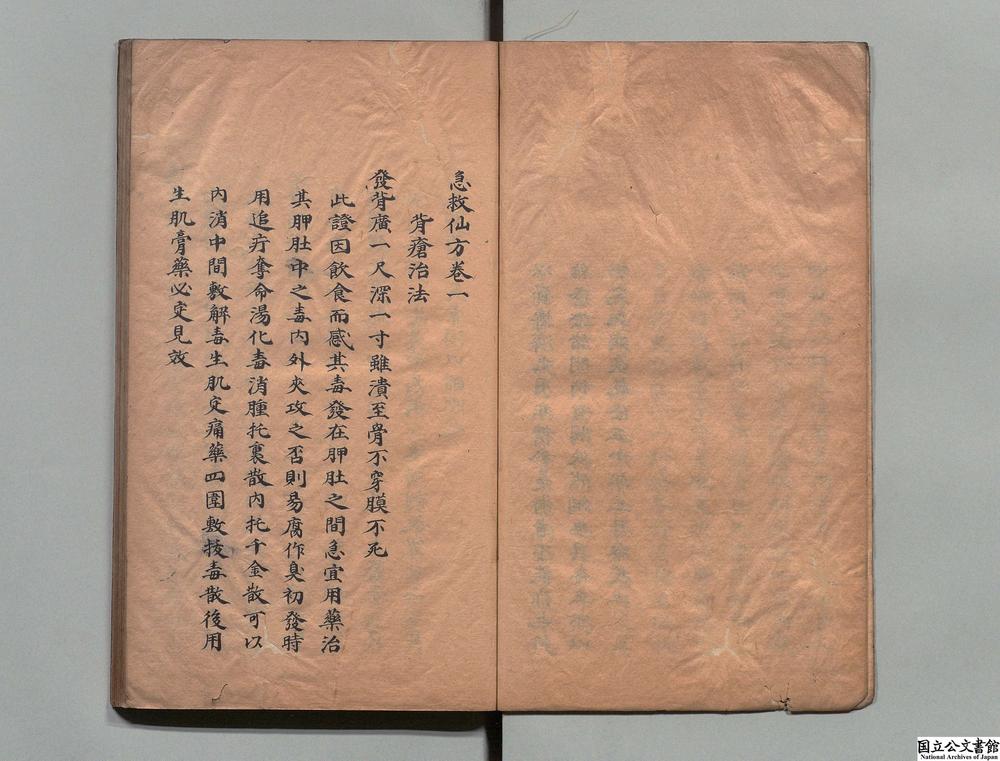 急救仙方卷一
背瘡治法
發背廣一尺深一寸雖潰至骨不穿膜不死
此證因飲食而感其毒發在胛肚之間急宜用藥治
其胛肚中之毒内外夾攻之否則易腐作臭初發時
用追疔奪命湯化毒消腫托裏散内托千金散可以
内消中間敷解毒生肌定痛藥四圍敷拔毒散後用
生肌膏藥必定見效
国立公文書館
National Archives of Japan